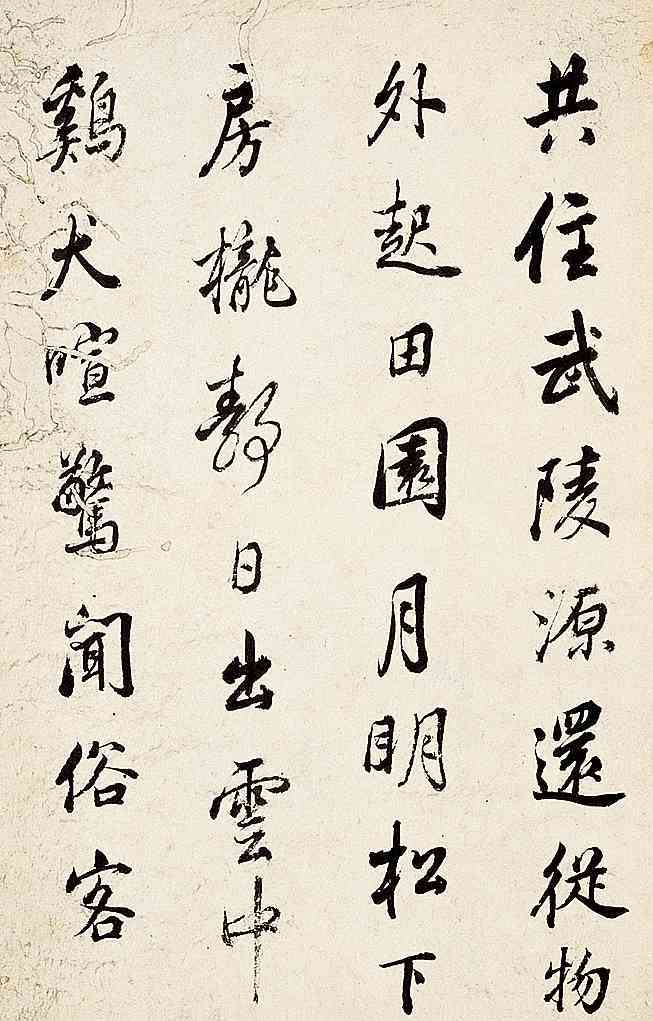 共住武陵源還從物
外起田園月明松下
房櫳靜日出雲中
鷄犬喧驚聞俗客